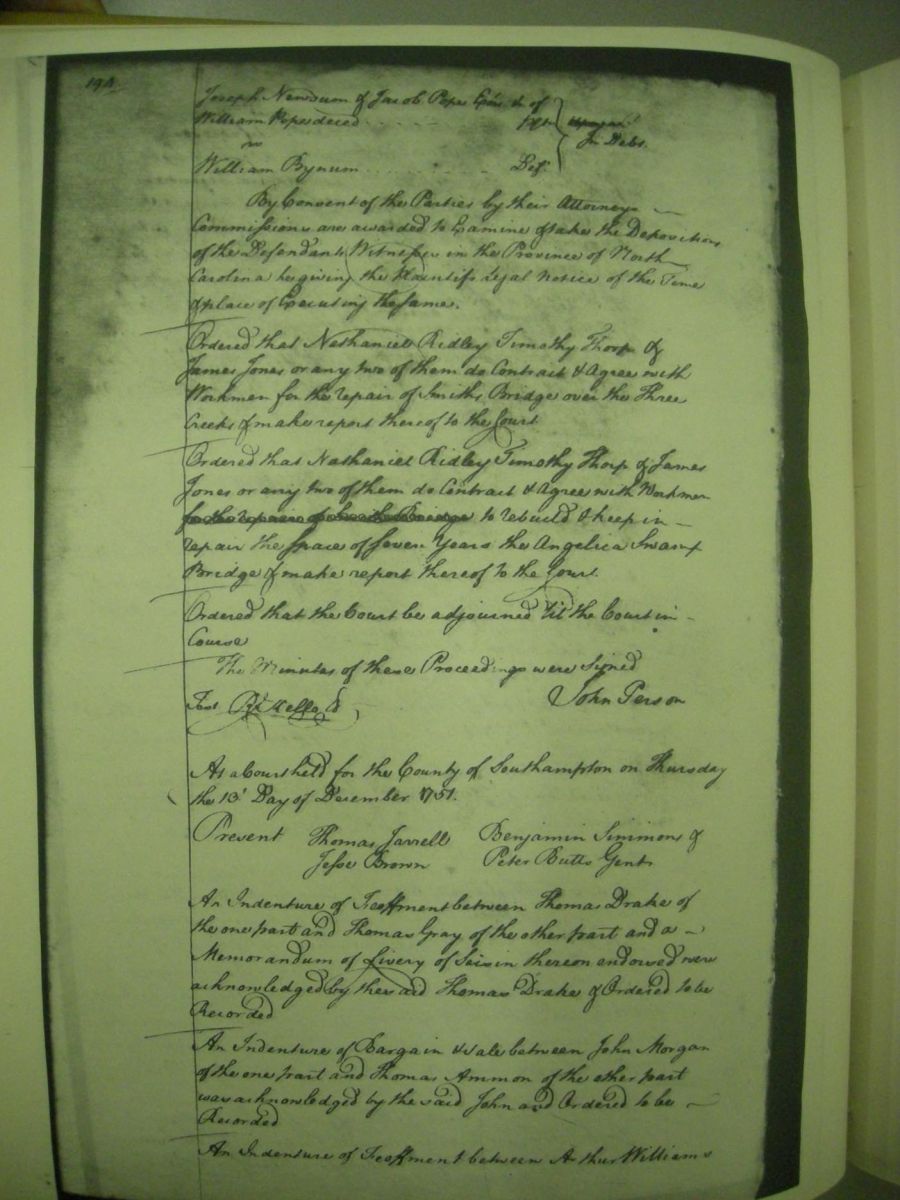 194
Joseph Newsum & Jacob Pope Exrs. &c of
William Pope deced. . . . . . Plts
In Debt.
vs
William Bynum . . . . . . . Def.
By Consent of the Parties by their Attorneys
Commissions are awarded to Examine & take the Depositions
of the Defendants Witnesses in the Province of North
Carolina he giving the Plaintifs legal Notice of the Time
& place of Executing the same.
Ordered that Nathaniel Ridley Timothy Thorp &
James Jones or any two of them do Contract & Agree with
Workmen for the repair of Smiths Bridge over the Three
Creeks & make report thereof to the Court
Ordered that Nathaniel Ridley Timothy Thorp & James
Jones or any two of them do Contract & Agree with Workmen
for the repair of Smiths Bridge to rebuild & keep in
repair the space of seven Years the Angelica Swamp
Bridge & make report thereof to the Court
Ordered that the Court be adjourned 'til the Court in
Course
The Minutes of these Proceedings were Signed
Test John Person
At a Court held for the County of Southampton on Thursday
the 13' Day of December 1751.
Present Thomas Jarrell Benjamin Simmons &
Jesse Brown Peter Butts Gent.
An Indenture of Feoffment between Thomas Drake of
the one part and Thomas Gray of the other part and a
Memorandum of Livery of Seisin thereon endorsed were
acknowledged by the said Thomas Drake & Ordered to be
Recorded
An Indenture of Bargain & Sale between John Morgan
of the one part and Thomas Ammon of the other part
was acknowledged by the said John and Ordered to be
Recorded
An Indenture of Feoffment between Arthur Williams